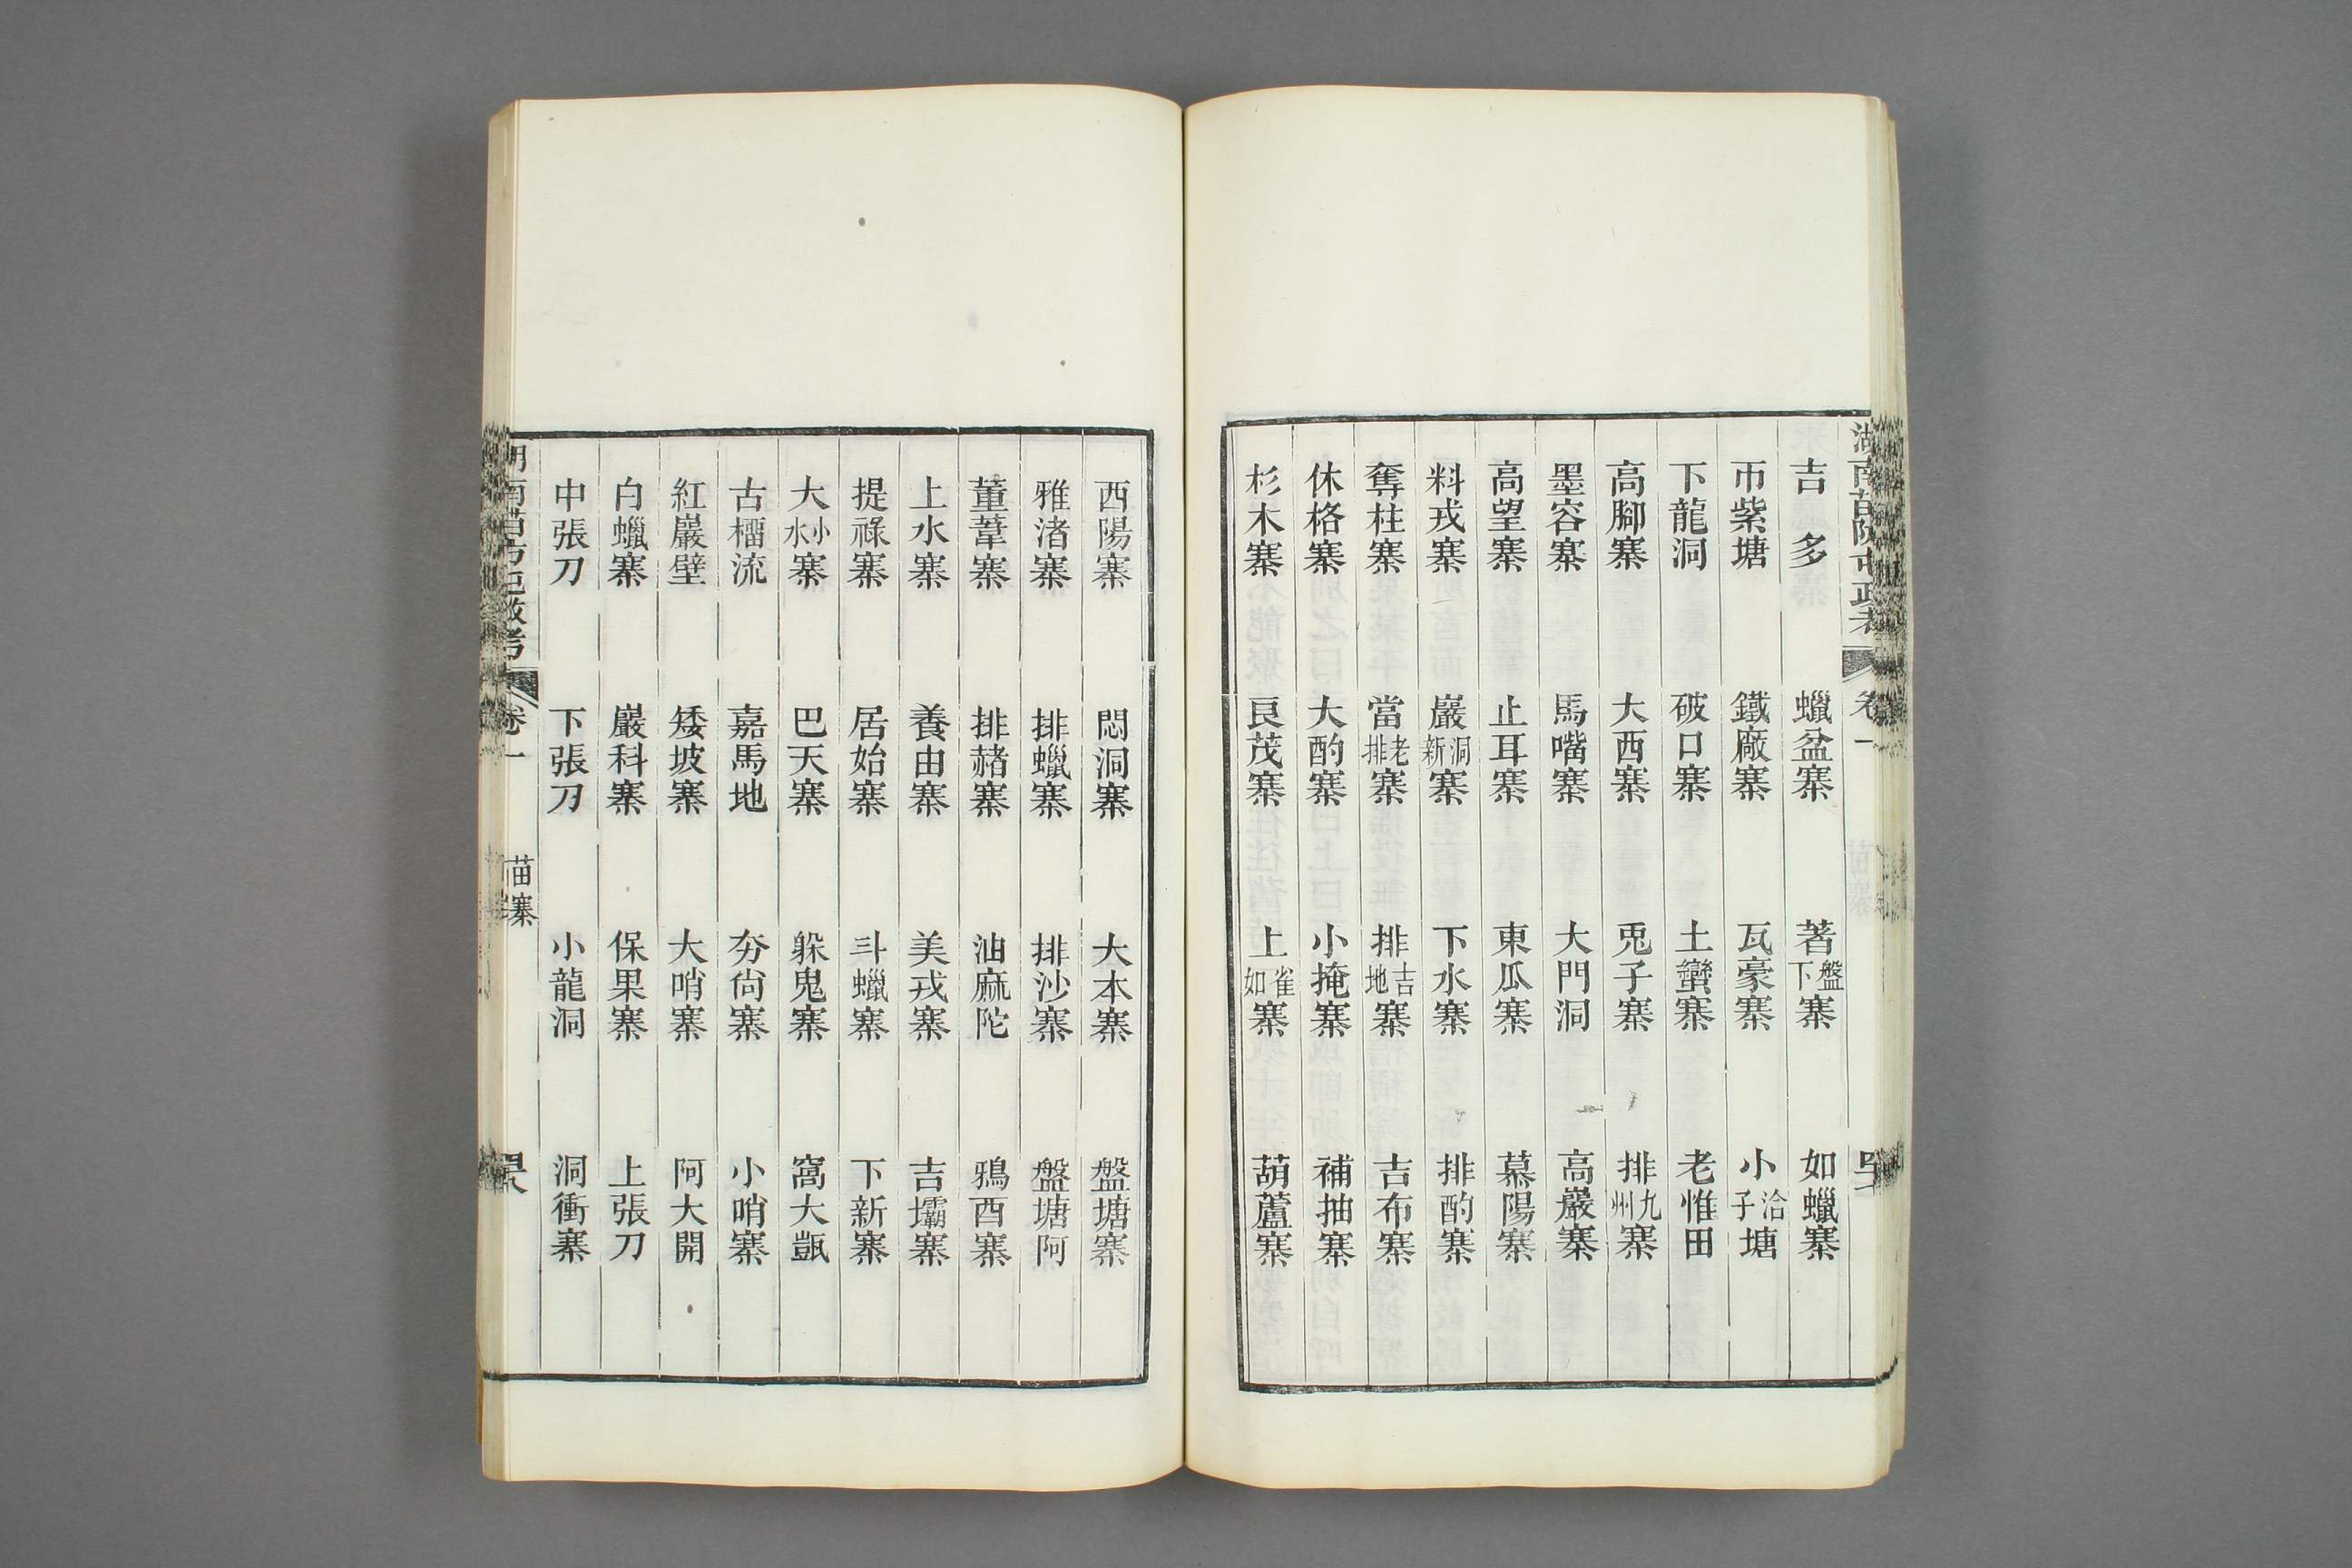 吉多 蠟盆寨 著盤下寨 如蠟寨
帀紫塘 鐵廠寨 瓦豪寨 小洽子塘
下龍洞 破口寨 土蠻寨 老惟田
高腳寨 大西寨 兎子寨 排九州寨
墨容寨 馬嘴寨 大門洞 高巖寨
高望寨 止耳寨 東瓜寨 慕陽寨
料戎寨 巖洞新寨 下水寨 排酌寨
奪柱寨 當老排寨 排吉地寨 吉布寨
休格寨 大酌寨 小掩寨 補抽寨
杉木寨 艮茂寨 上雀如寨 葫蘆寨
西陽寨 悶洞寨 大本寨 盤塘寨
雅渚寨 排蠟寨 排沙寨 盤塘阿
董葦寨 排赭寨 油麻陀 鴉酉寨
上水寨 養由寨 美戎寨 吉壩寨
提祿寨 居始寨 斗蠟寨 下新寨
大小水寨 巴天寨 躲鬼寨 窩大甑
古橊流 嘉馬地 夯尙寨 小哨寨
紅巖壁 矮坡寨 大哨寨 阿大開
白蠟寨 巖科寨 保果寨 上張刀
中張刀 下張刀 小龍洞 洞衝寨
卷一 苗寨